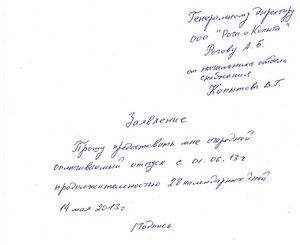 Генеральному директору
ООО "Рога и Копыта"
Рогову А.Б.
от начальника отдела
снабжения
Копытова В.Г.
Заявление
Прошу предоставить мне очередной
оплачиваемый отпуск с 01.06.13г
продолжительностью 28 календарных дней.
14 мая 2013г.
Подпись